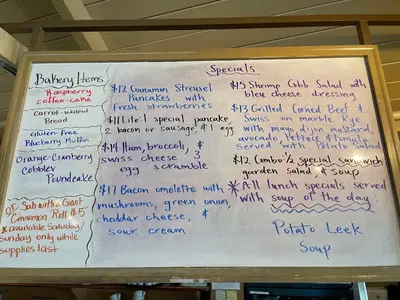 Bakery Items
Raspberry
coffee-cake
Carrot-walnut
Bread
Gluten-free
Blueberry Muffin
Orange-Cranberry
Cobbler
Poundcake
Sab with a Giant
Cinnamon Roll $5
* available Saturday/
Sunday only while
supplies last
Specials
$12 Cinnamon Streusel
Pancakes with
fresh strawberries
$11 Lite: 1 special pancake,
2 bacon or sausage & 1
egg
$14 Ham, broccoli, &
swiss cheese 3
egg scramble
$17 Bacon omelette with
mushrooms, green onion,
cheddar cheese, &
sour cream
$15 Shrimp Cobb Salad with
bleu cheese dressing
$13 Grilled Corned Beef &
Swiss on marble Rye
with mayo, dijon mustard,
avocado, lettuce & tomato
Served with Potato Salad
$12 Combo: 1/2 special sandwich
garden salad, & soup
* All lunch specials served
with soup of the day.
Potato Leek
Soup